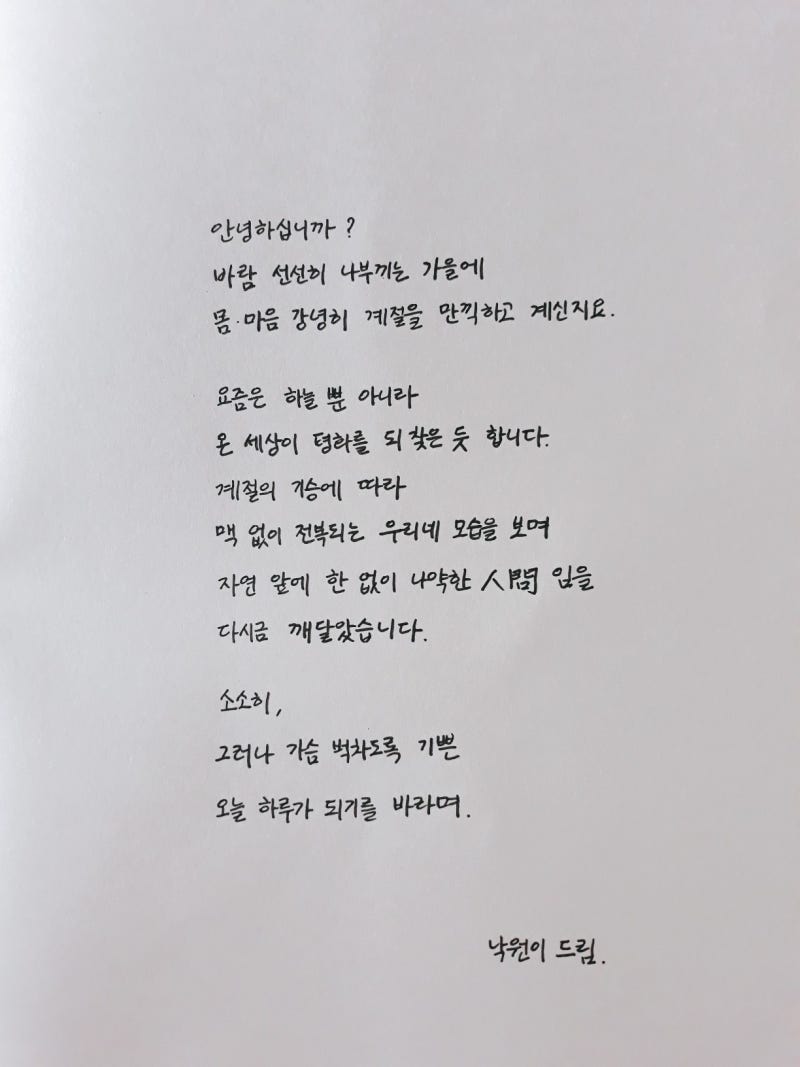 안녕하십니까?
바람 선선히 나부끼는 가을에
몸·마음 강녕히 계절을 만끽하고 계신지요.
요즘은 하늘 뿐 아니라
온 세상이 평화를 되찾은 듯 합니다.
계절의 겨승에 따라
맥 없이 전복되는 우리네 모습을 보며
자연 앞에 한 없이 나약한 人間 임을
다시금 깨달았습니다.
소소히,
그러나 가슴 벅차도록 기쁜
오늘 하루가 되기를 바라며.
낙원이 드림.